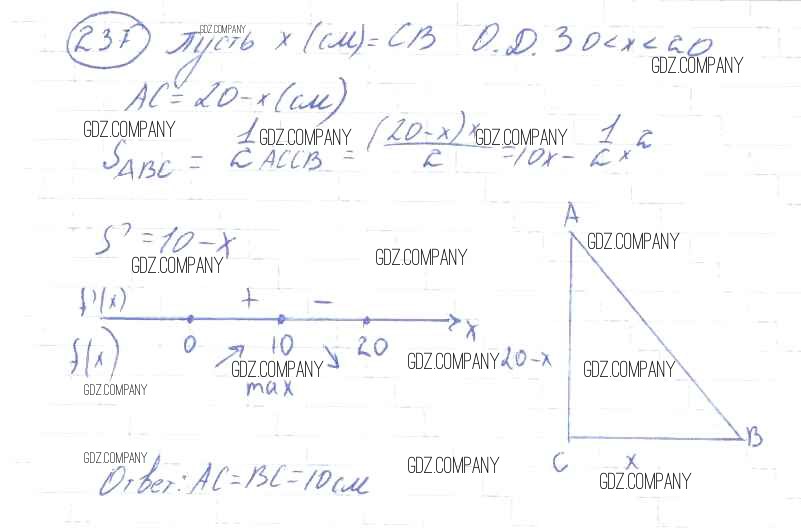 237 Пусть x (см) = CB О.Д.З 0<x<20
GDZ.COMPANY
GDZ.COMPANY
AC = 20 - x (см)
GDZ.COMPANY GDZ.COMPANY GDZ.COMPANY
S_ABC = 1/2 ACCB = (20-x)x/2 = 10x - 1/2 x²
A
S' = 10 - x
GDZ.COMPANY
GDZ.COMPANY GDZ.COMPANY
f'(x) + -
0 10 20 x
f(x)
GDZ.COMPANY GDZ.COMPANY 20-x GDZ.COMPANY
GDZ.COMPANY
max
B
C x
GDZ.COMPANY GDZ.COMPANY
GDZ.COMPANY
Ответ: AC = BC = 10 см